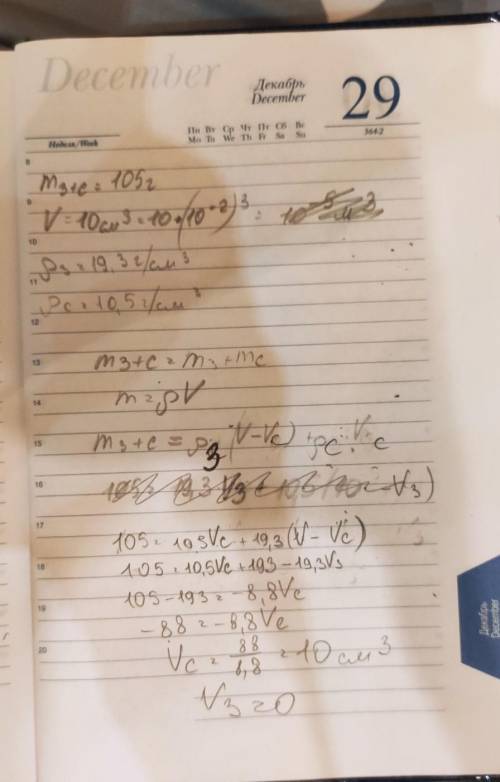 December
Декабрь
December
29
Пн Вт Ср Чт Пт Сб Вс
Mo Tu We Th Fr Sa Su
Неделя/Week
364-2
8
m з+с = 105 г
9
V = 10 см³ = 10 · (10⁻²)³ =
10
ρз = 19,3 г/см³
11
ρс = 10,5 г/см³
12
13
m з+с = mз + mс
14
m = ρV
15
m з+с = ρз (V-Vс) + ρс · Vс
16
17
105 = 10,5Vс + 19,3 (V - Vс)
18
105 = 10,5Vс + 193 - 19,3Vз
105-193 = -8,8Vс
19
-88 = -8,8Vс
20
Vс = 88/8,8 = 10 см³
Vз = 0
Декабрь
December